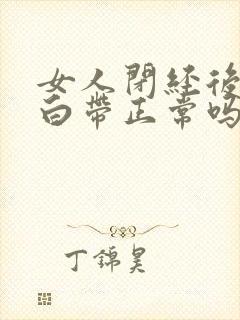 女人閉経後
白帶正常吗
丁錦昊